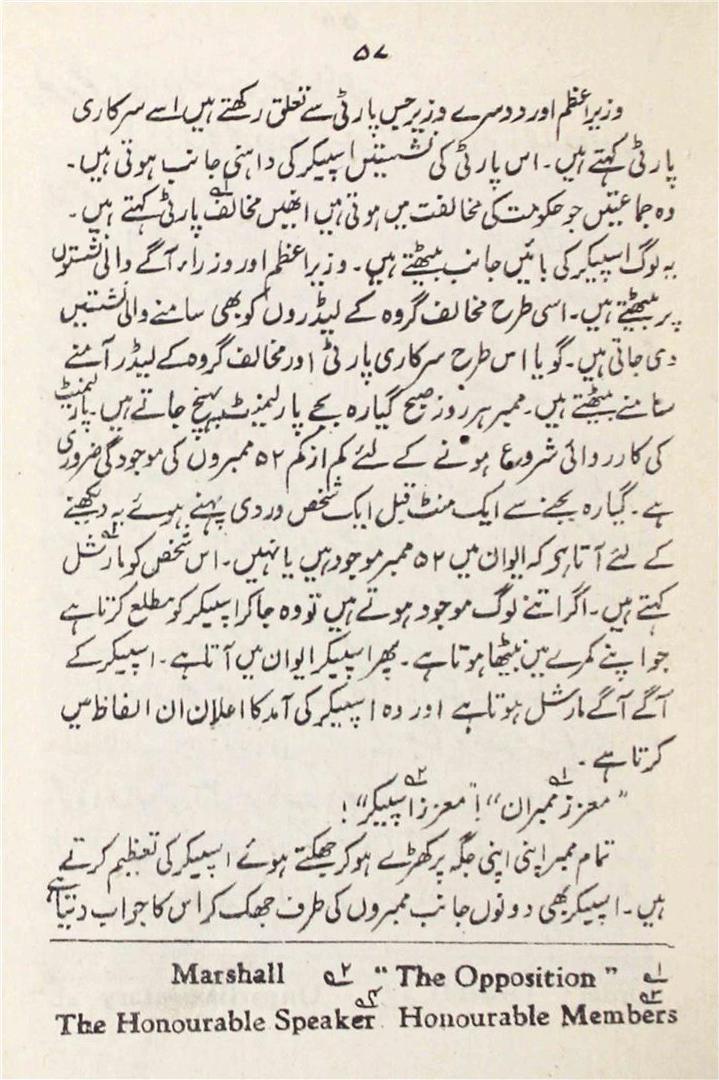 ۵۷
وزیراعظم اور دوسرے وزیر جس پارٹی سے تعلق رکھتے ہیں اسے سرکاری
پارٹی کہتے ہیں۔ اس پارٹی کی نشستیں اسپیکر کی داہنی جانب ہوتی ہیں۔
وہ جماعتیں جو حکومت کی مخالفت میں ہوتی ہیں انھیں مخالف پارٹی۱؎ کہتے ہیں۔
یہ لوگ اسپیکر کی بائیں جانب بیٹھتے ہیں۔ وزیراعظم اور وزراء آگے والی نشستوں
پر بیٹھتے ہیں۔ اسی طرح مخالف گروہ کے لیڈروں کو بھی سامنے والی نشستیں
دی جاتی ہیں۔ گویا اس طرح سرکاری پارٹی اور مخالف گروہ کے لیڈر آمنے
سامنے بیٹھتے ہیں۔ ممبر ہر روز صبح گیارہ بجے پارلیمنٹ پہنچ جاتے ہیں۔ پارلیمنٹ
کی کارروائی شروع ہونے کے لئے کم از کم ۵۲ ممبروں کی موجودگی ضروری
ہے۔ گیارہ بجنے سے ایک منٹ قبل ایک شخص وردی پہنے ہوئے یہ دیکھنے
کے لئے آتا ہے کہ ایوان میں ۵۲ ممبر موجود ہیں یا نہیں۔ اس شخص کو مارشل۲؎
کہتے ہیں۔ اگر اتنے لوگ موجود ہوتے ہیں تو وہ جاکر اسپیکر کو مطلع کرتا ہے
جو اپنے کمرے میں بیٹھا ہوتا ہے۔ پھر اسپیکر ایوان میں آتا ہے۔ اسپیکر کے
آگے آگے مارشل ہوتا ہے اور وہ اسپیکر کی آمد کا اعلان ان الفاظ میں
کرتا ہے۔
"معزز ممبران۱؎"! "معزز اسپیکر۲؎"!
تمام ممبر اپنی اپنی جگہ پر کھڑے ہوکر جھکتے ہوئے اسپیکر کی تعظیم کرتے
ہیں۔ اسپیکر بھی دونوں جانب ممبروں کی طرف جھک کر اس کا جواب دیتا ہے
۱؎ "The Opposition" ۲؎ Marshall
۳؎ Honourable Members ۴؎ The Honourable Speaker